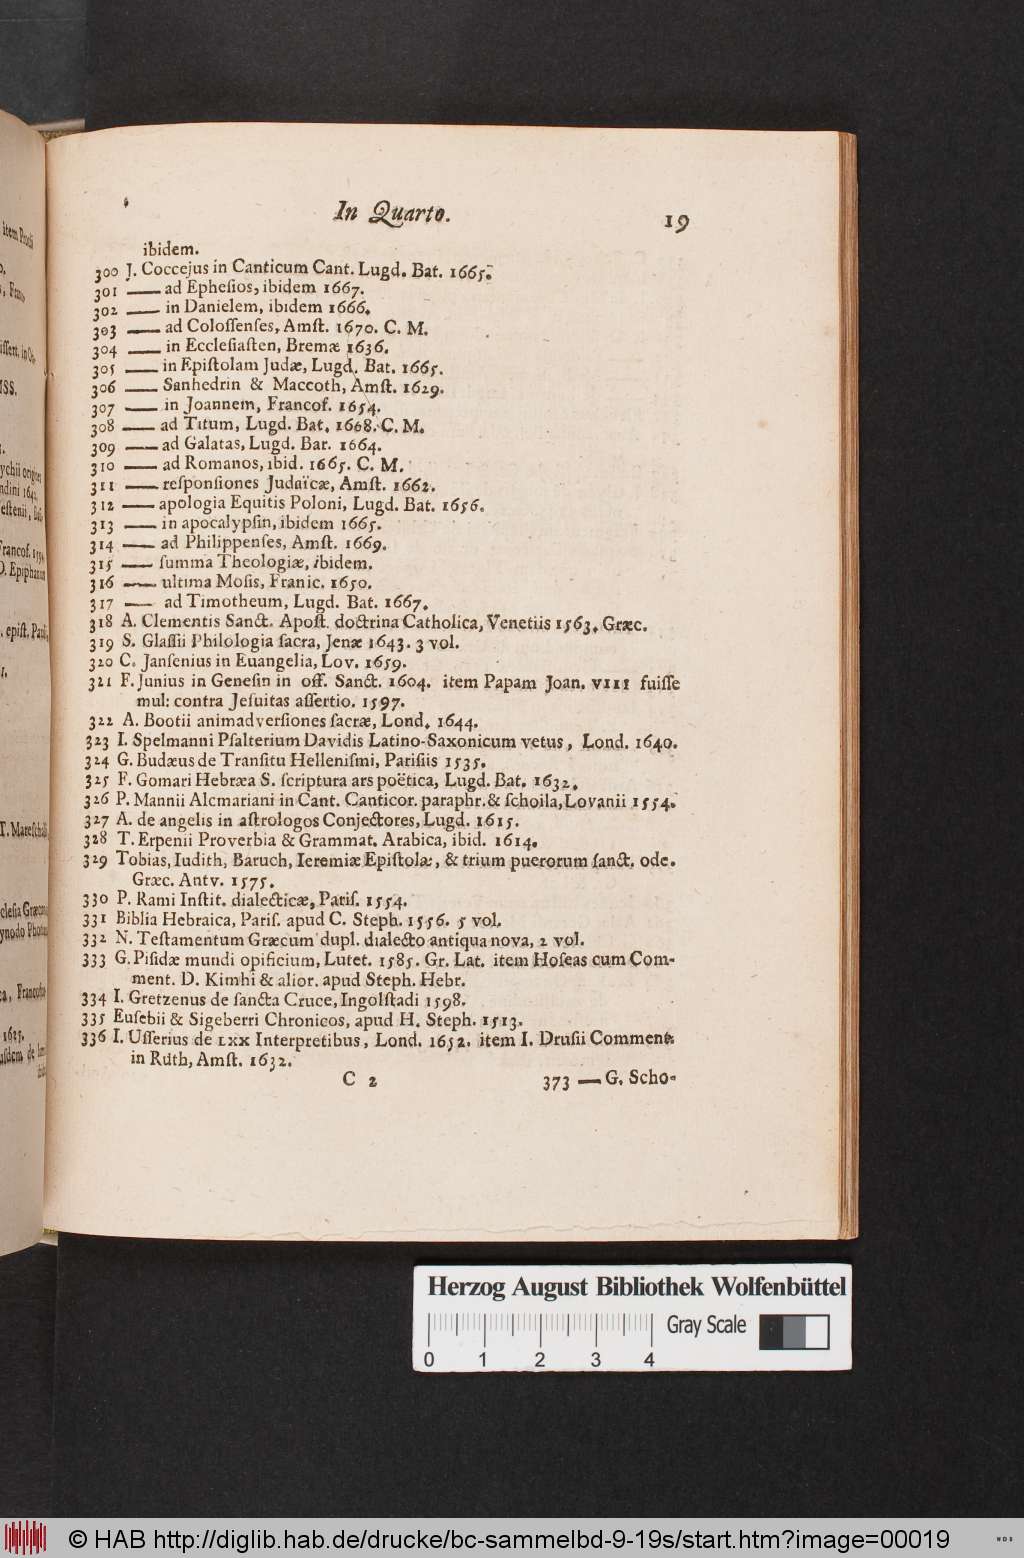 In Quarto. 19
ibidem.
300 J. Coccejus in Canticum Cant. Lugd. Bat. 1665.
301 —— ad Ephesios, ibidem 1667.
302 —— in Danielem, ibidem 1666.
303 —— ad Colossenses, Amst. 1670. C. M.
304 —— in Ecclesiasten, Bremæ 1636.
305 —— in Epistolam Judæ, Lugd. Bat. 1665.
306 —— Sanhedrin & Maccoth, Amst. 1629.
307 —— in Joannem, Francof. 1654.
308 —— ad Titum, Lugd. Bat. 1668. C. M.
309 —— ad Galatas, Lugd. Bar. 1664.
310 —— ad Romanos, ibid. 1665. C. M.
311 —— responsiones Judaïcæ, Amst. 1662.
312 —— apologia Equitis Poloni, Lugd. Bat. 1656.
313 —— in apocalypsin, ibidem 1665.
314 —— ad Philippenses, Amst. 1669.
315 —— summa Theologiæ, ibidem.
316 —— ultima Mosis, Franic. 1650.
317 —— ad Timotheum, Lugd. Bat. 1667.
318 A. Clementis Sanct. Apost. doctrina Catholica, Venetiis 1563. Græc.
319 S. Glassii Philologia sacra, Jenæ 1643. 3 vol.
320 C. Jansenius in Euangelia, Lov. 1659.
321 F. Junius in Genesin in off. Sanct. 1604. item Papam Joan. VIII fuisse
mul: contra Jesuitas assertio. 1597.
322 A. Bootii animadversiones sacræ, Lond. 1644.
323 I. Spelmanni Psalterium Davidis Latino-Saxonicum vetus, Lond. 1640.
324 G. Budæus de Transitu Hellenismi, Parisiis 1535.
325 F. Gomari Hebræa S. scriptura ars poëtica, Lugd. Bat. 1632.
326 P. Mannii Alcmariani in Cant. Canticor. paraphr. & schoila, Lovanii 1554.
327 A. de angelis in astrologos Conjectores, Lugd. 1615.
328 T. Erpenii Proverbia & Grammat. Arabica, ibid. 1614.
329 Tobias, Iudith, Baruch, Ieremiæ Epistolæ, & trium puerorum sanct. ode.
Græc. Antv. 1575.
330 P. Rami Instit. dialecticæ, Paris. 1554.
331 Biblia Hebraica, Paris. apud C. Steph. 1556. 5 vol.
332 N. Testamentum Græcum dupl. dialecto antiqua nova, 2 vol.
333 G. Pisidæ mundi opificium, Lutet. 1585. Gr. Lat. item Hoseas cum Com-
ment. D. Kimhi & alior. apud Steph. Hebr.
334 I. Gretzenus de sancta Cruce, Ingolstadi 1598.
335 Eusebii & Sigeberri Chronicos, apud H. Steph. 1513.
336 I. Usserius de LXX Interpretibus, Lond. 1652. item I. Drusii Comment.
in Ruth, Amst. 1632.
C 2 373 — G. Scho-
Herzog August Bibliothek Wolfenbüttel
Gray Scale
0 1 2 3 4
© HAB http://diglib.hab.de/drucke/bc-sammelbd-9-19s/start.htm?image=00019